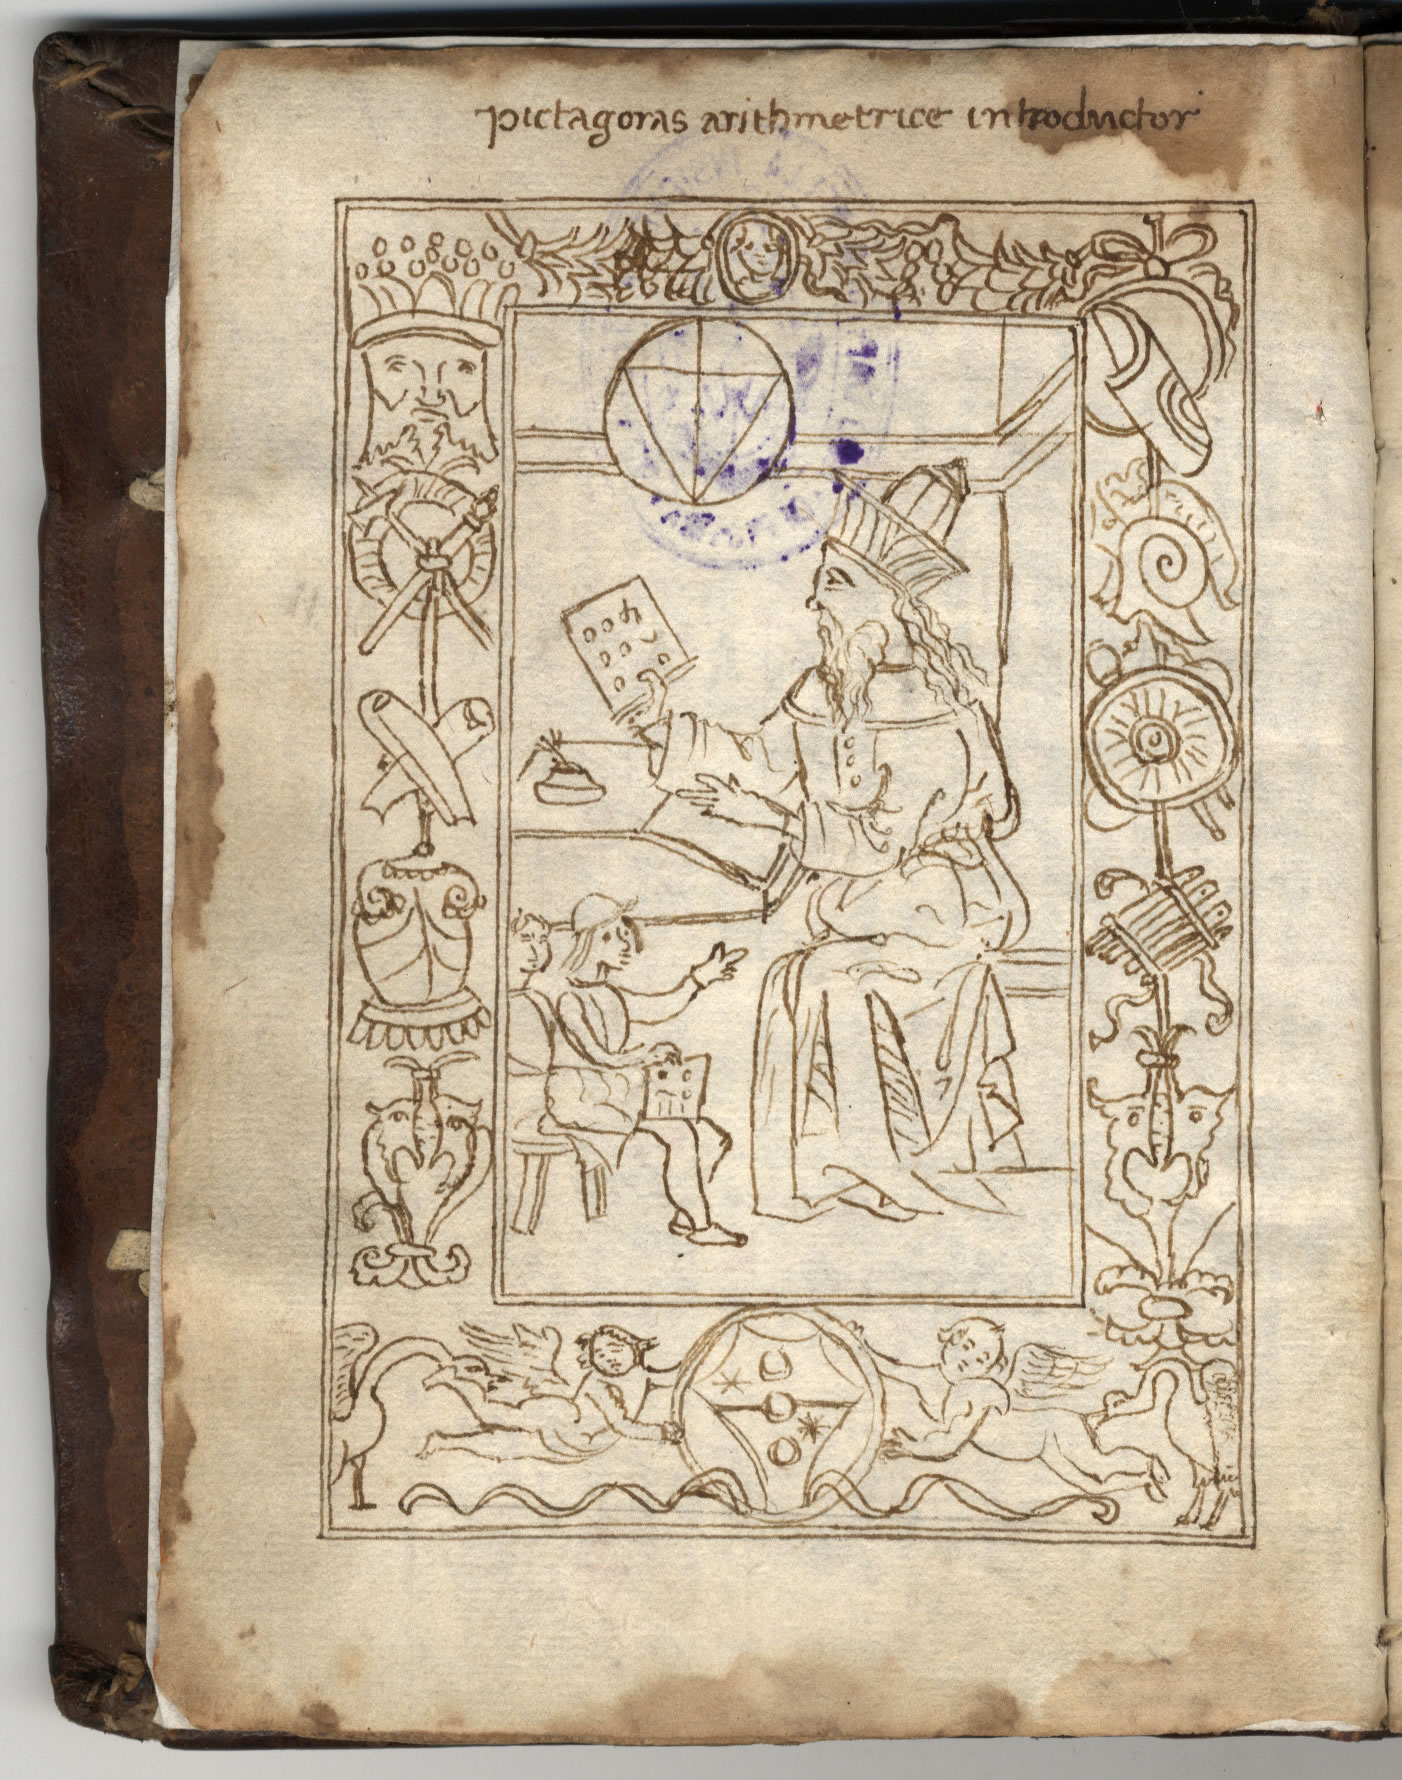 pictagoras arithmetrice introductor